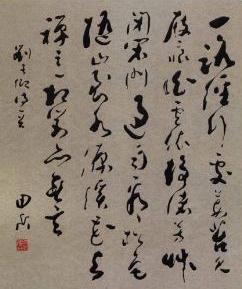 一路經行處莓苔見
屐痕白雲依靜渚芳草
閉閑門過雨看松色
隨山到水源溪花與
禪意相對亦忘言
劉長卿詩
田